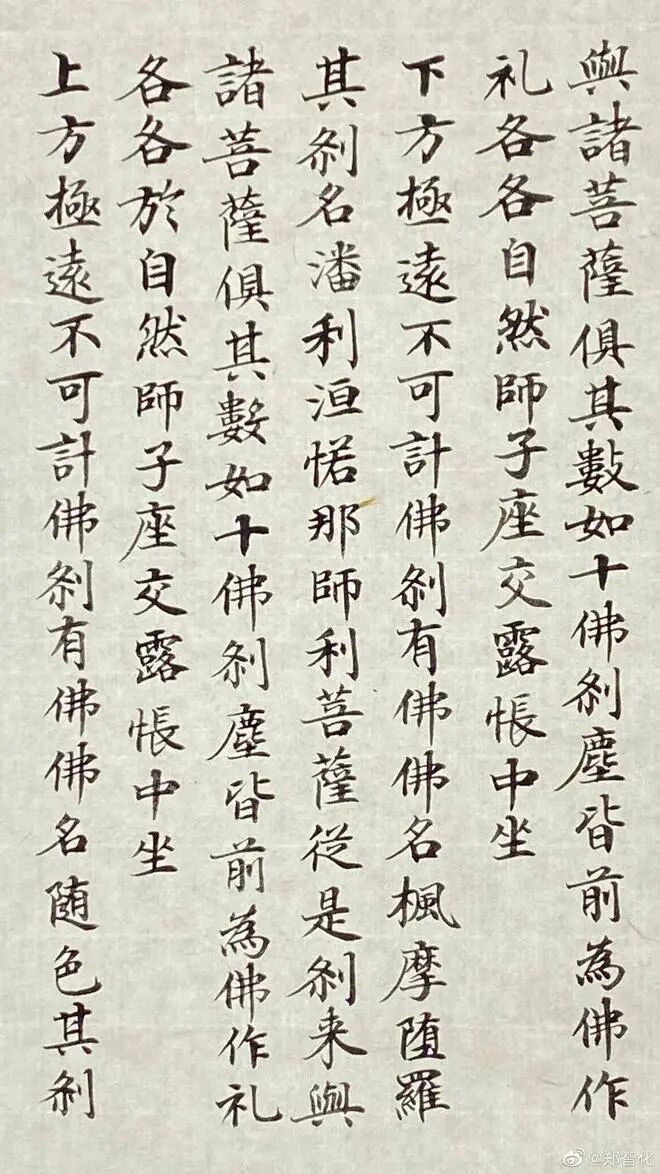 與諸菩薩俱其數如十佛刹塵皆前為佛作
礼各各自然師子座交露帳中坐
下方極遠不可計佛刹有佛佛名楓摩堕羅
其刹名潘利洹惦那師利菩薩從是刹来與
諸菩薩俱其數如十佛刹塵皆前為佛作礼
各各於自然師子座交露帳中坐
上方極遠不可計佛刹有佛佛名随色其刹
@郑智化